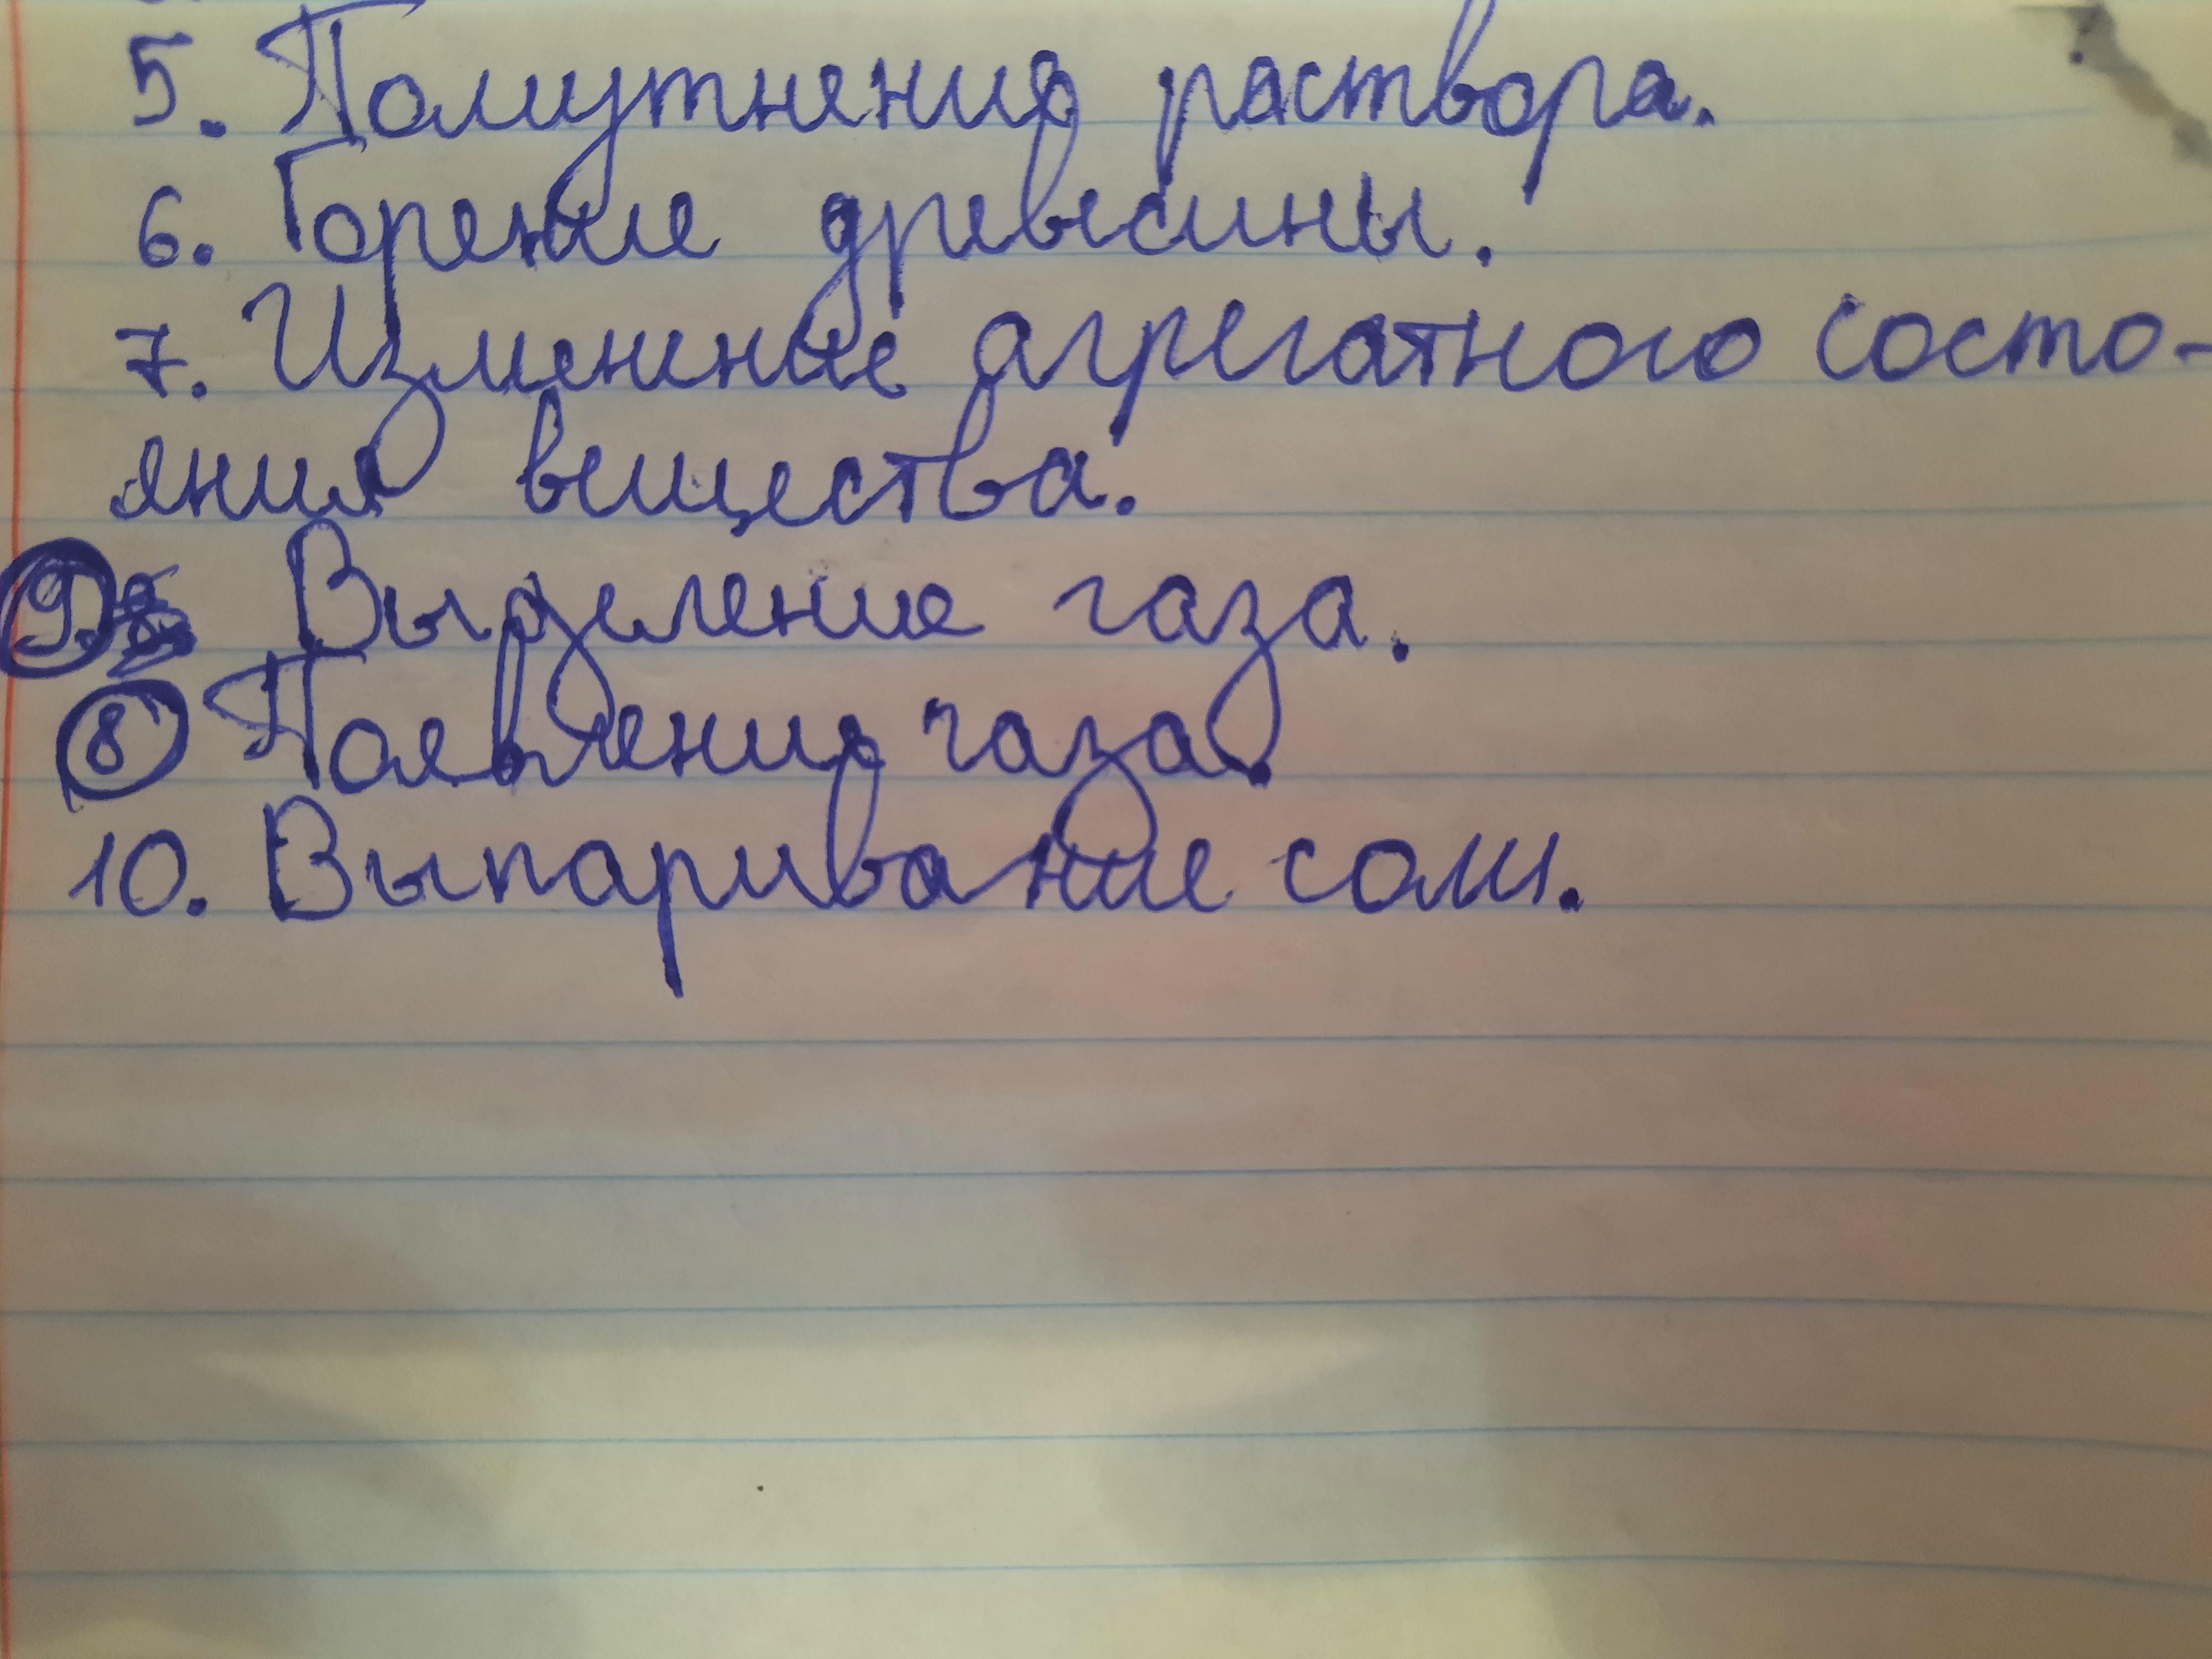 5. Помутнения раствора.
6. Горение древесины.
7. Изменение агрегатного состо-
яния вещества.
9. Выделение газа.
8 Появления газа.
10. Выпаривание соли.